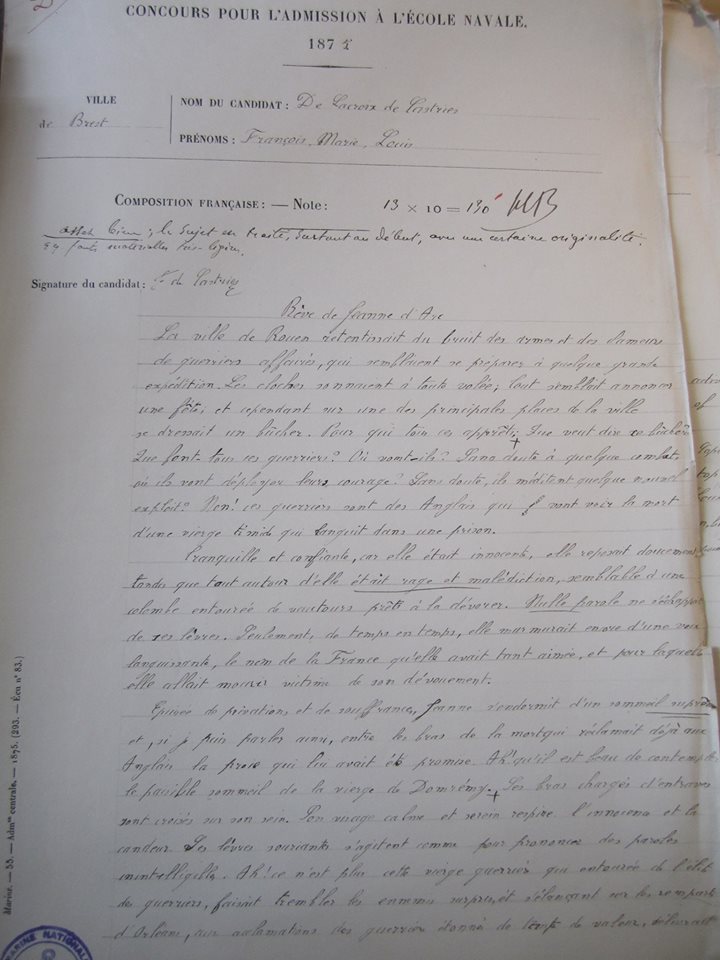 CONCOURS POUR L'ADMISSION À L'ÉCOLE NAVALE.
1875
VILLE
de Brest
NOM DU CANDIDAT : De Lacroix de Castries
PRÉNOMS : François Marie Louis
COMPOSITION FRANÇAISE : — Note : 13 × 10 = 130
assez bien ; le sujet est traité, surtout au début, avec une certaine originalité.
fautes matérielles très légères.
Signature du candidat : F. de Castries
Rêve de Jeanne d'Arc
La ville de Rouen retentissait du bruit des armes et des clameurs
de guerriers affairés, qui semblaient se préparer à quelque grande
expédition. Les cloches sonnaient à toute volée ; tout semblait annoncer
une fête, et cependant sur une des principales places de la ville
se dressait un bûcher. Pour qui tous ces apprêts ? Que veut dire ce bûcher
Que font tous ces guerriers ? Où vont-ils ? Sans doute à quelque combat
où ils vont déployer leurs courage ? Sans doute, ils méditent quelque nouvel
exploit ? Non ! ces guerriers sont des Anglais qui vont voir la mort
d'une vierge timide qui languit dans une prison.
Tranquille et confiante, car elle était innocente, elle reposait doucement
tandis que tout autour d'elle était rage et malédiction, semblable à une
colombe entourée de vautours prêts à la dévorer. Nulle parole ne s'échappait
de ses lèvres. Seulement, de temps en temps, elle murmurait encore d'une voix
languissante, le nom de la France qu'elle avait tant aimée, et pour laquelle
elle allait mourir victime de son dévouement.
Epuisée de privations et de souffrances, Jeanne s'endormit d'un sommeil suprême
et, si je puis parler ainsi, entre les bras de la mort qui réclamait déjà aux
Anglais la proie qui lui avait été promise. Ah ! qu'il est beau de contempler
le paisible sommeil de la vierge de Domrémy. Ses bras chargés d'entraves
sont croisés sur son sein. Son visage calme et serein respire l'innocence et la
candeur. Ses lèvres souriantes s'agitent comme pour prononcer des paroles
inintelligibles. Ah ! ce n'est plus cette vierge guerrière qui entourée de l'élite
des guerriers, faisait trembler les ennemis surpris, et s'élançant sur les remparts
d'Orléans, aux acclamations des guerriers étonnés de tant de valeur, délivrait
Marine. — 55. — Adm<sup>on</sup> centrale. — 1875. (293. — Écu n° 83.)
MARINE NATIONALE